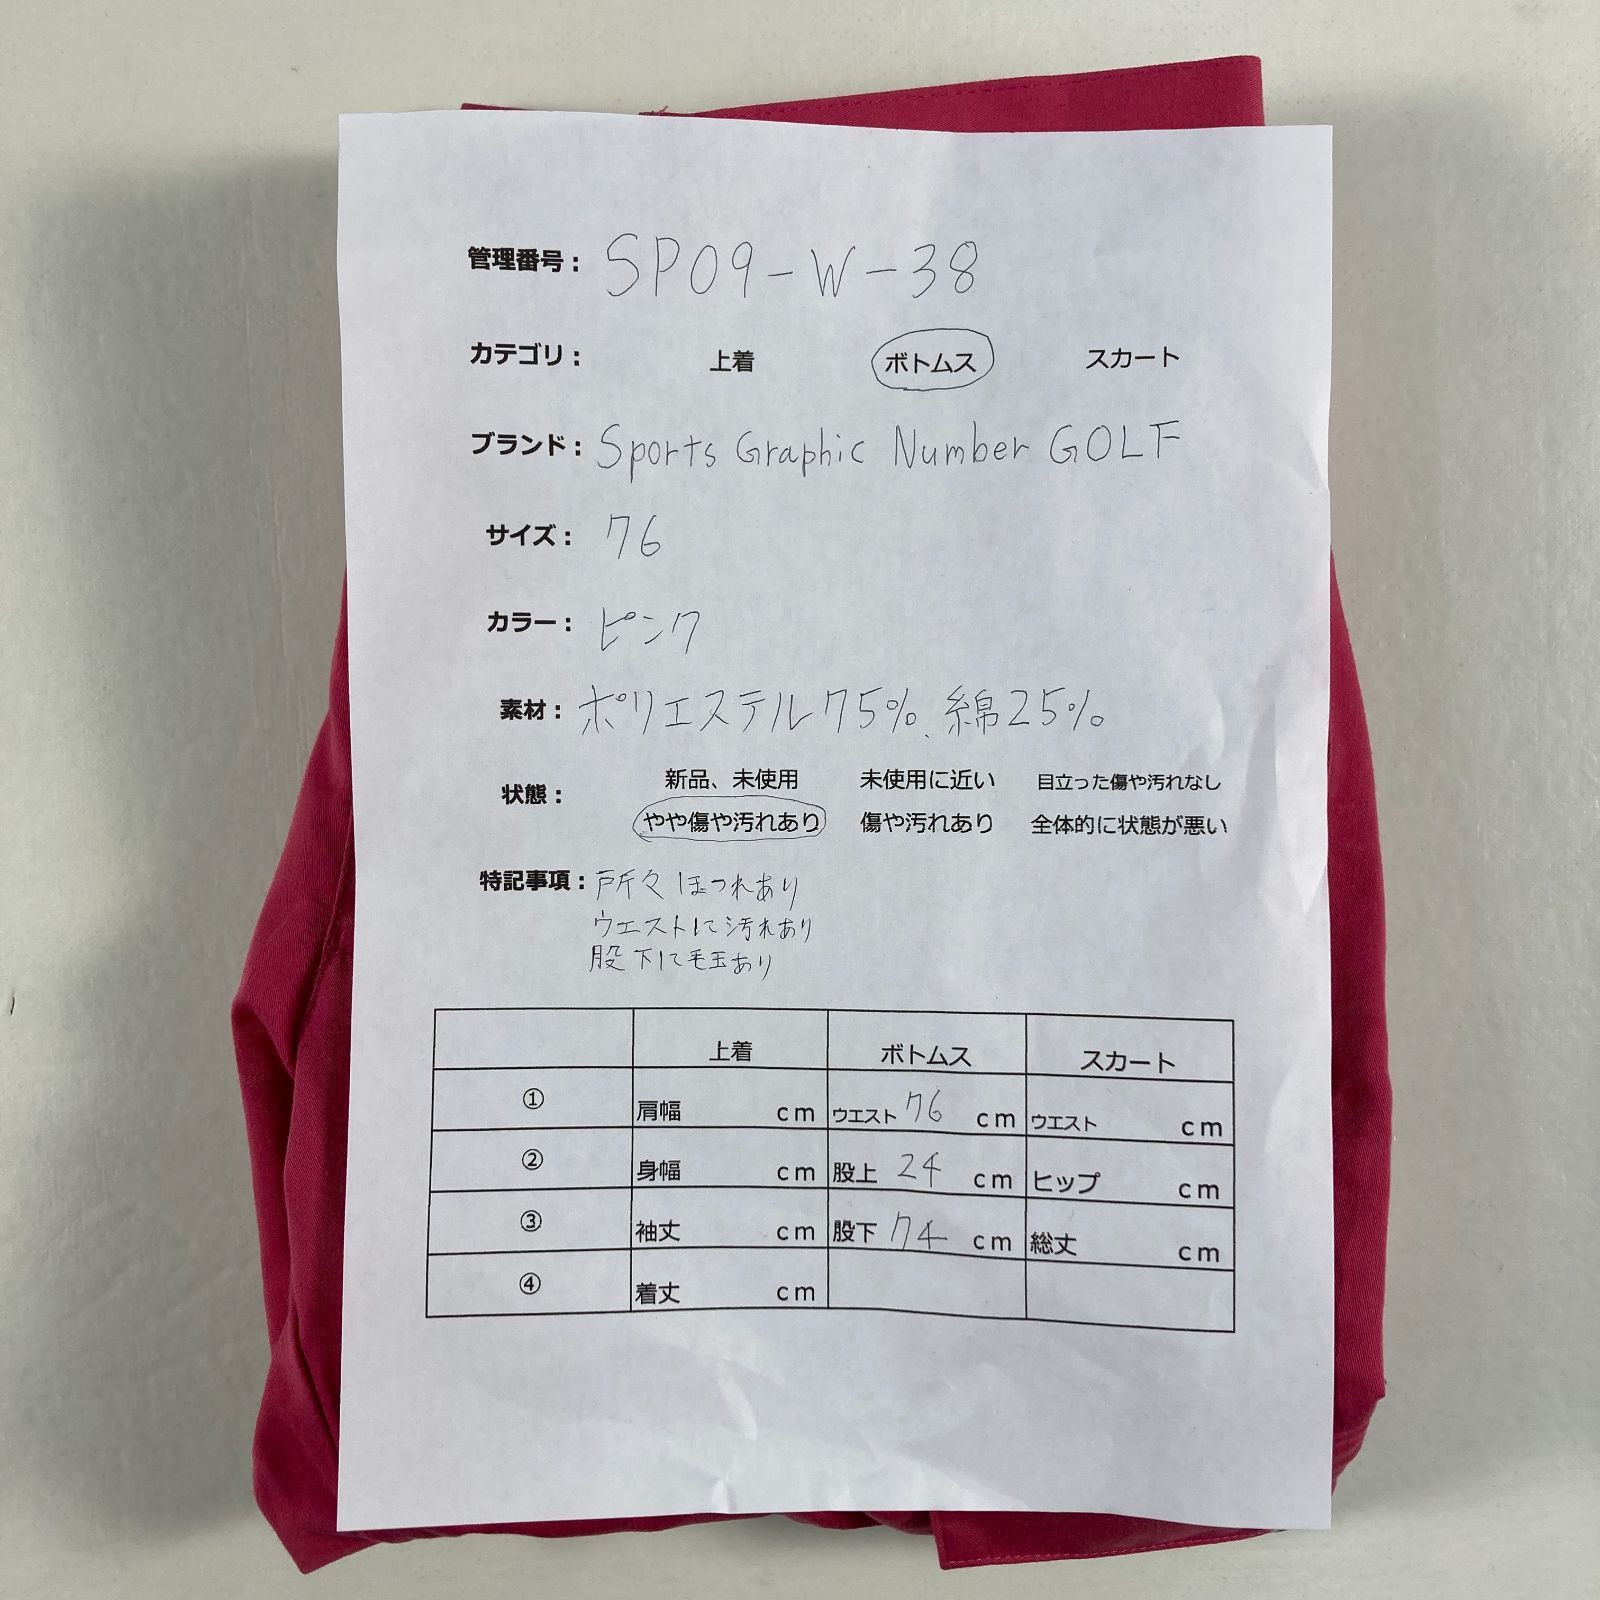 管理番号： SP09-W-38
カテゴリ： 上着 ボトムス スカート
ブランド： Sports Graphic Number GOLF
サイズ： 76
カラー： ピンク
素材： ポリエステル75%、綿25%
状態： 新品、未使用 未使用に近い 目立った傷や汚れなし
やや傷や汚れあり 傷や汚れあり 全体的に状態が悪い
特記事項： 所々ほつれあり
ウエストに汚れあり
股下に毛玉あり
上着 ボトムス スカート
① 肩幅 cm ウエスト 76 cm ウエスト cm
② 身幅 cm 股上 24 cm ヒップ cm
③ 袖丈 cm 股下 74 cm 総丈 cm
④ 着丈 cm